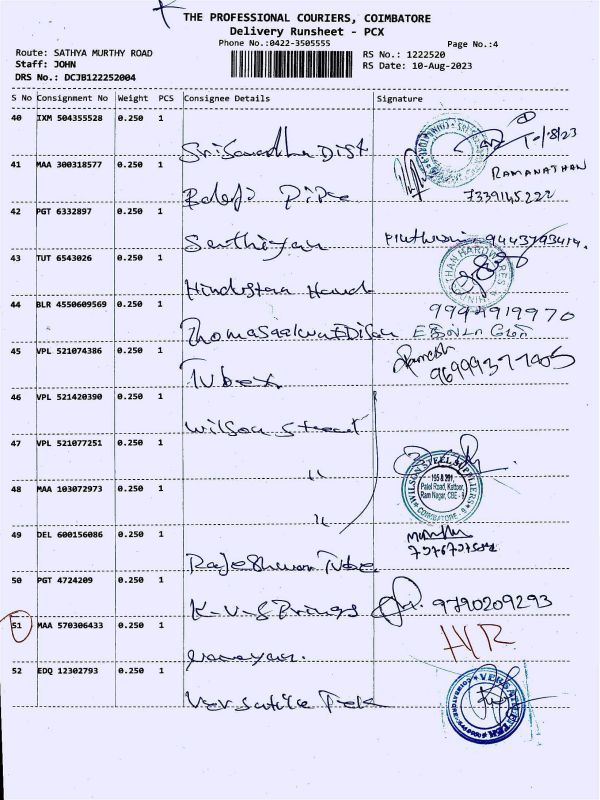 THE PROFESSIONAL COURIERS, COIMBATORE
Delivery Runsheet - PCX
Phone No.:0422-3505555
Page No.:4
Route: SATHYA MURTHY ROAD
RS No.: 1222520
Staff: JOHN
RS Date: 10-Aug-2023
DRS No.: DCJB122252004
S No Consignment No Weight PCS Consignee Details Signature
40 IXM 504355528 0.250 1
Dist 10/8/23
41 MAA 300318577 0.250 1
RAMANATHAN
Balaji Pipe 7339145222
42 PGT 6332897 0.250 1
Senthivan 9443793414
43 TUT 6543026 0.250 1
Hindustan Hard
HINDUSTHAN HARDWARES
44 BLR 4550609569 0.250 1
9944919970
Thomas
45 VPL 521074386 0.250 1
Ramesh
Tubex
46 VPL 521420390 0.250 1
Wilson Steel
47 VPL 521077251 0.250 1
"
WILSON STEEL SUPPLIERS
48 MAA 103072973 0.250 1
Patel Road, Kattoor,
Ram Nagar, CBE - 9
COIMBATORE - 9
"
49 DEL 600156086 0.250 1
Rajeshwari Tube
50 PGT 4724209 0.250 1
K.V. Springs 9790209293
51 MAA 570306433 0.250 1
52 EDQ 12302793 0.250 1
Versatile Tek
VERSATILE TEK